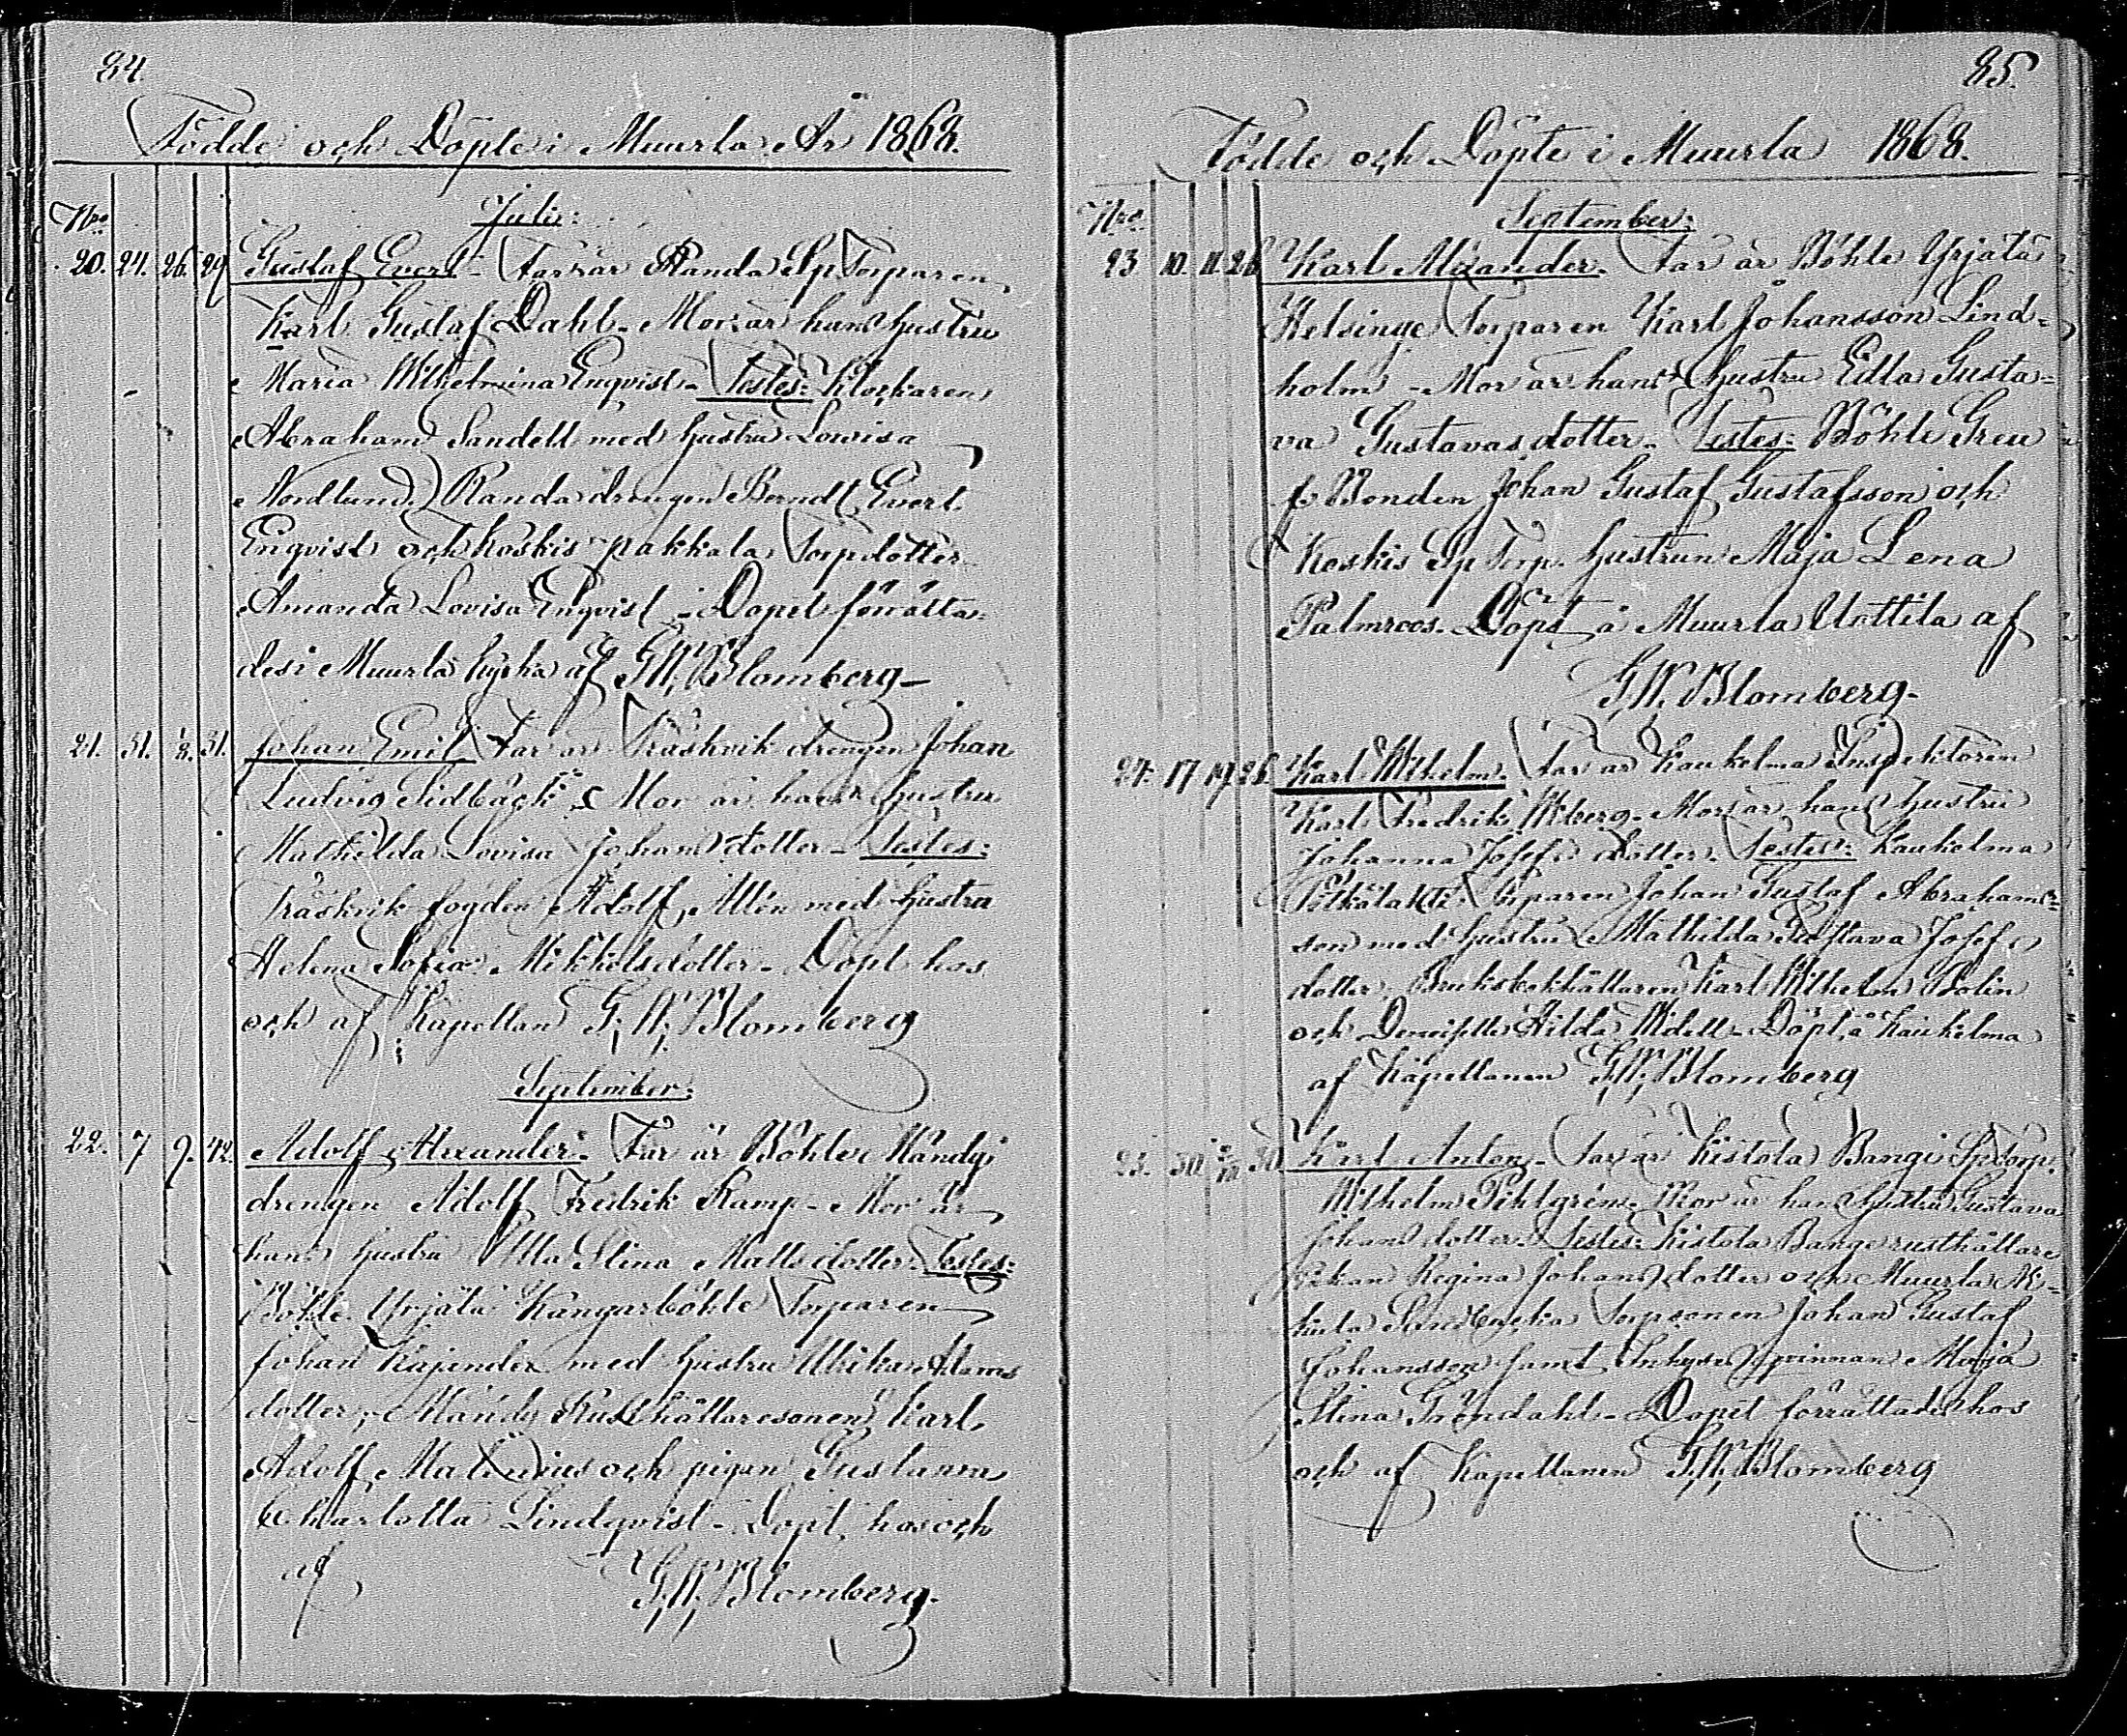 84.
Födde och Döpte i Muurla År 1868.
Nro Juli:
20. 24. 26. 29 Gustaf Evert - Far är Randa Sp. Torparen
Karl Gustaf Dahl - Mor är hans hustru
Maria Wilhelmina Enqvist - Testes: Klockaren
Abraham Sandell med hustru Lowisa
Nordlund, Randa drengen Berndt Evert
Enqvist och Koskis pakkala Torpdotter
Amanda Lovisa Enqvist - Dopet förrätta-
des i Muurla kyrka af G.W. Blomberg -
21. 31. 1/8. 31. Johan Emil Far är Träskvik drengen Johan
Ludvig Sidbäck - Mor är hans hustru
Mathilda Lovisa Johansdotter - Testes:
Träskvik fogden Adolf Allén med hustru
Helena Sofia Mikkelsdotter - Döpt hos
och af Kapellan G.W. Blomberg
September:
22. 7 9. 42. Adolf Alexander - Far är Böhle Mändy
drengen Adolf Fredrik Kamp - Mor är
hans hustru Ulla Stina Mattsdotter - Testes:
Böhle Yrjälä Kangarböhle Torparen
Johan Kajander med hustru Ulrika Adams
dotter, Mändy Rusthållaresonen Karl
Adolf och pigan Gustava
Charlotta Lindqvist - Döpt hos och
af G.W. Blomberg.
85.
Födde och Döpte i Muurla 1868.
Nro September:
23 10. 11. 26 Karl Alexander. Far är Böhle Yrjälä
Helsinge Torparen Karl Johansson Lind-
holm - Mor är hans hustru Eilla Gusta-
va Gustavasdotter - Testes: Böhle Greu
f Bonden Johan Gustaf Gustafsson och
Koskis Sp Torp. hustrun Maja Lena
Palmroos. Döpt å Muurla Uottila af
G.W. Blomberg -
24. 17 19 26 Karl Wilhelm. Far är Kaukelma Inspektoren
Karl Fredrik Wiberg - Mor är hans hustru
Johanna Josefsdotter. Testes: Kaukolma
Torparen Johan Gustaf Abrahams-
son med hustru Mathilda Gustava Josefs
dotter, Bruksbokhållaren Karl Wilhelm Bolin
och Demoiselle Hilda Widell - Döpt å Kaukelma
af Kapellanen G.W. Blomberg
25. 30. 2/10 30 Karl Anton - Far är Kistola Bangi Sp Torp.
Wilhelm Pihlgrén - Mor är hans hustru Gustava
Johansdotter - Testes: Kistola Bange rusthållare
Enkan Regina Johansdotter och Muurla Ni-
kula Torpsonen Johan Gustaf
Johansson samt Inhyses qvinnan Maja
Stina Gröndahl - Dopet förrättades hos
och af Kapellanen G.W. Blomberg